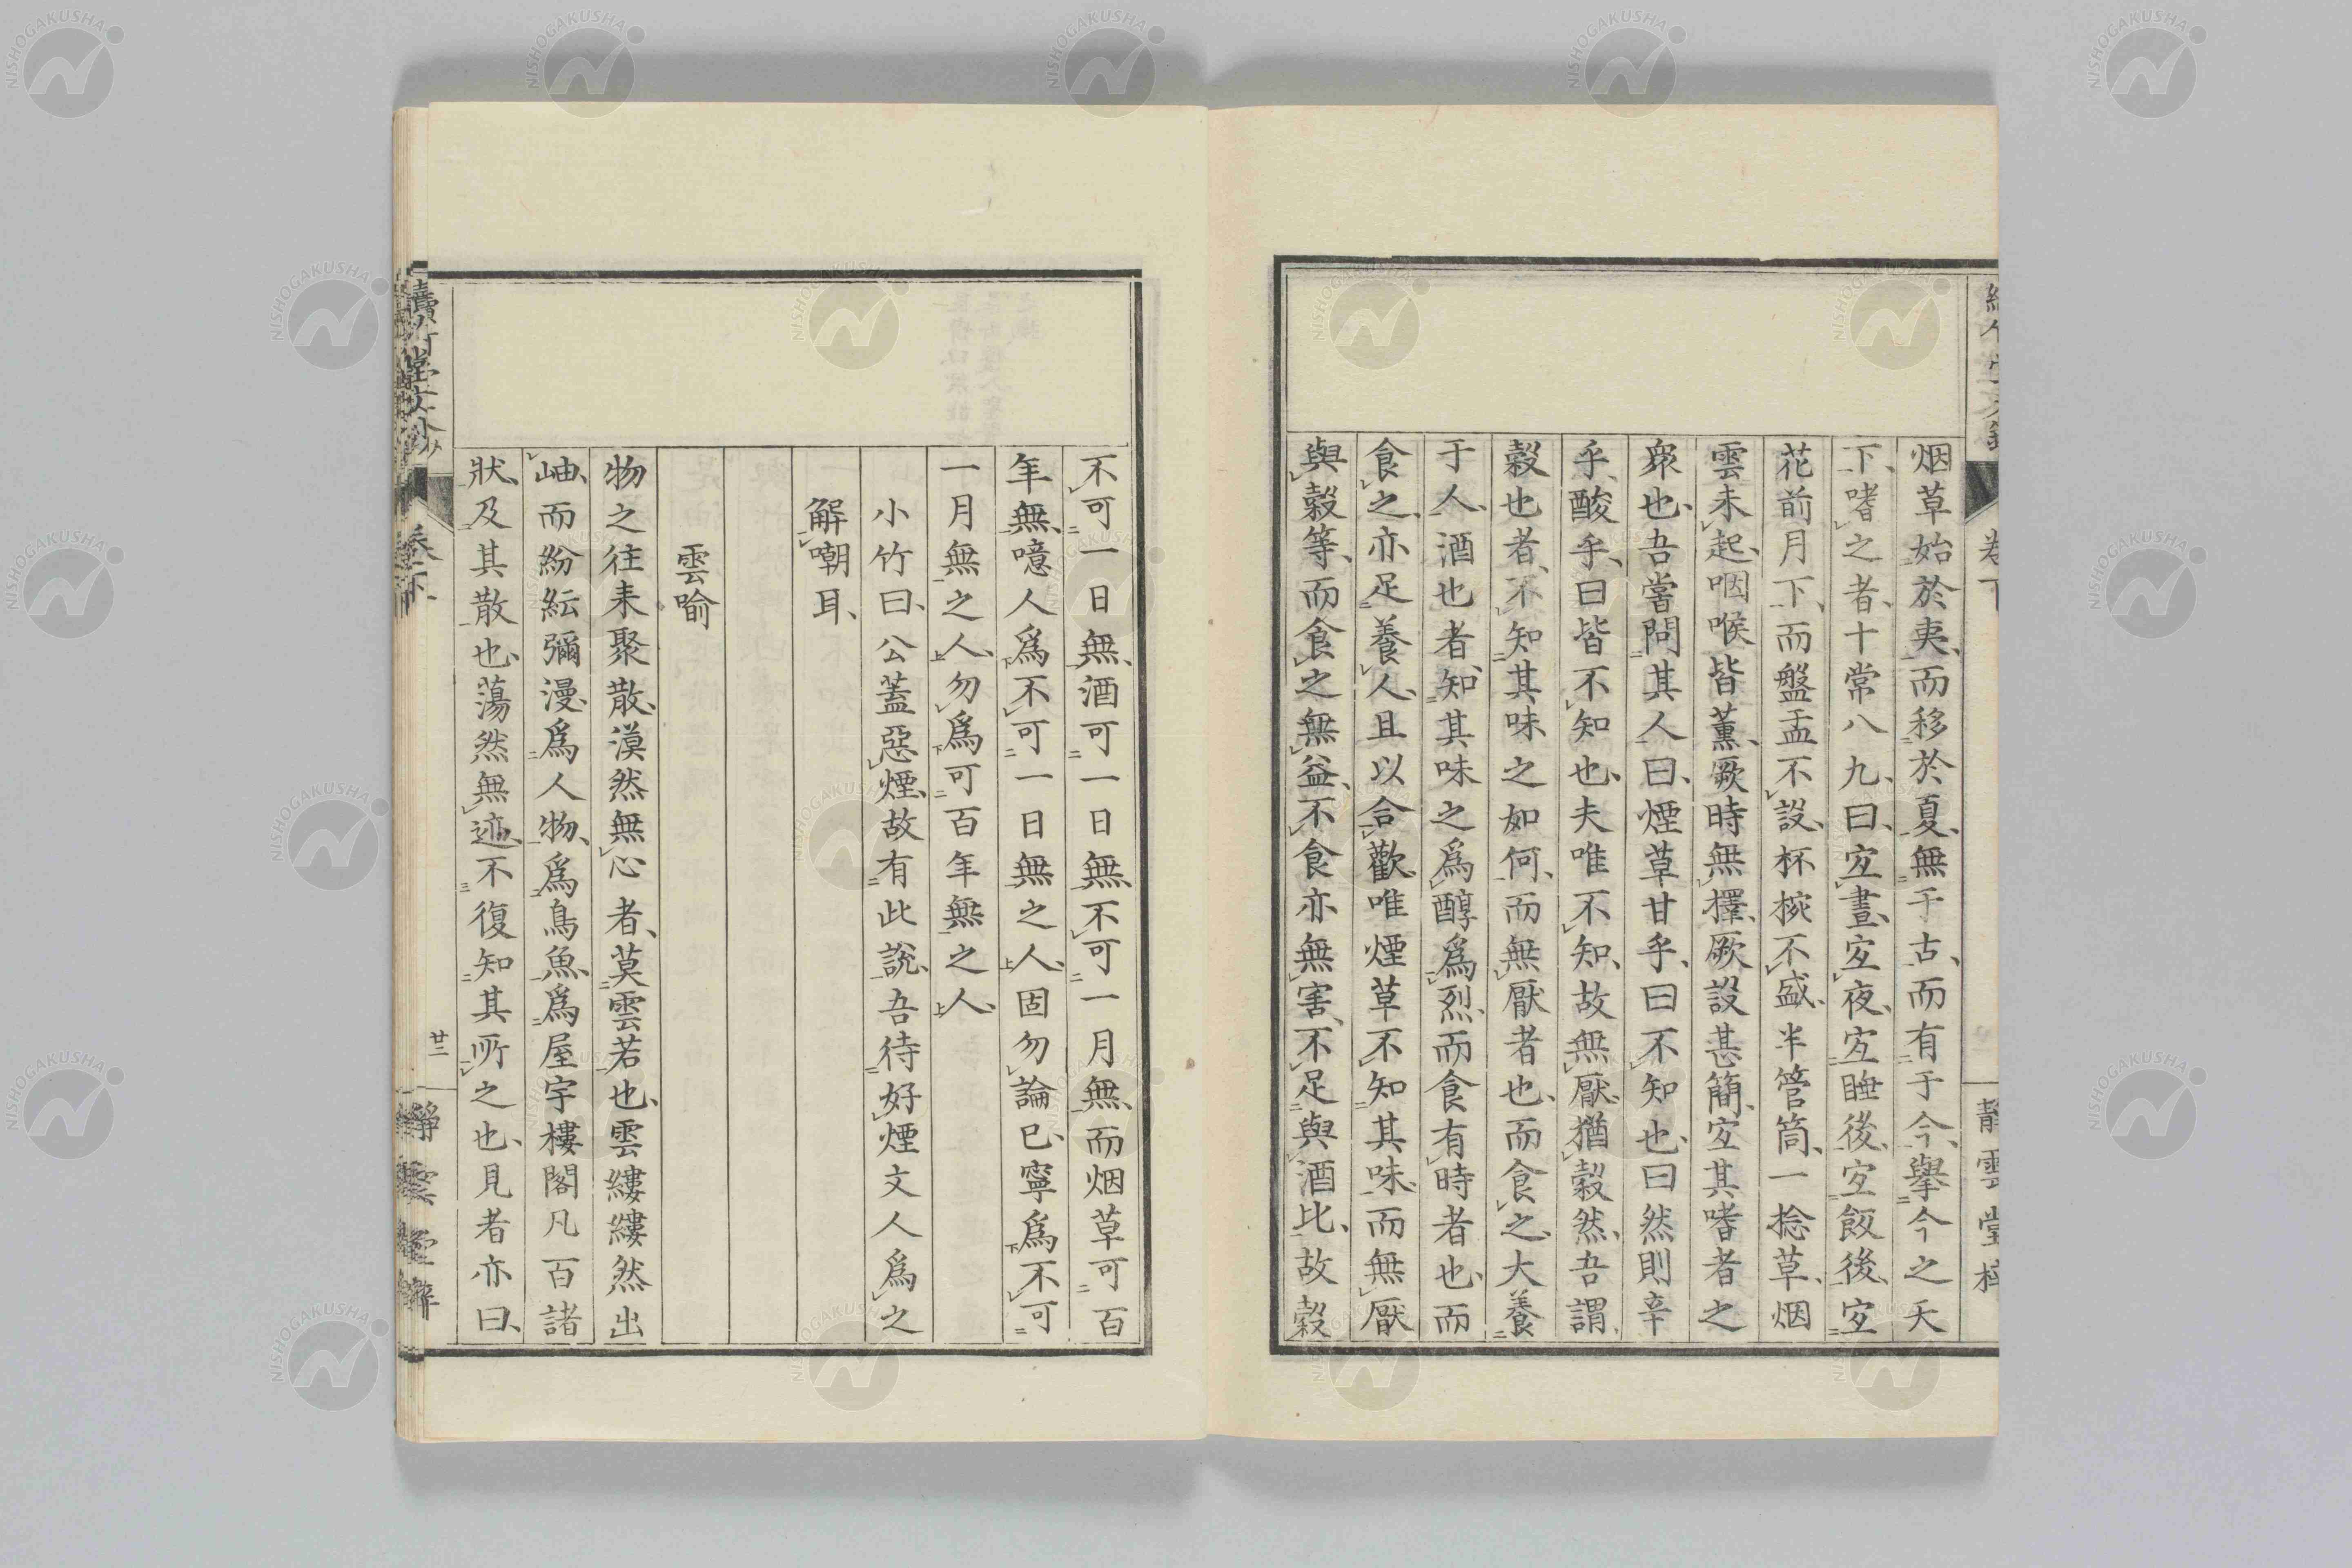 烟草始於夷、而移於夏、無于古、而有于今、擧今之天
下、嗜之者、十常八九、曰、宜晝、宜夜、宜睡後、宜飯後、宜
花前月下、而盤盂不設、杯椀不盛、半管筒、一捻草、烟
雲未起、咽喉皆薫、厥時無擇、厥設甚簡、宜其嗜者之
衆也、吾嘗問其人曰、煙草甘乎、曰不知也、曰然則辛
乎、酸乎、曰皆不知也、夫唯不知、故無厭、猶穀然、吾謂
穀也者、不知其味之如何、而無厭者也、而食之、大養
于人、酒也者、知其味之爲醇爲烈、而食有時者也、而
食之、亦足養人、且以合歡、唯煙草不知其味、而無厭
與穀等、而食之無益、不食亦無害、不足與酒比、故穀
不可一日無、酒可一日無、不可一月無、而烟草可百
年無、噫人爲不可一日無之人、固勿論已、寧爲不可
一月無之人、勿爲可百年無之人、
小竹曰、公蓋惡煙、故有此說、吾待好煙文人爲之
解嘲耳、
雲喻
物之往来聚散、漠然無心者、莫雲若也、雲縷縷然出
岫、而紛紜彌漫、爲人物、爲鳥魚、爲屋宇樓閣凡百諸
狀、及其散也、蕩然無迹、不復知其所之也、見者亦曰、
卷下
廿三
卷下
靜雲堂梓